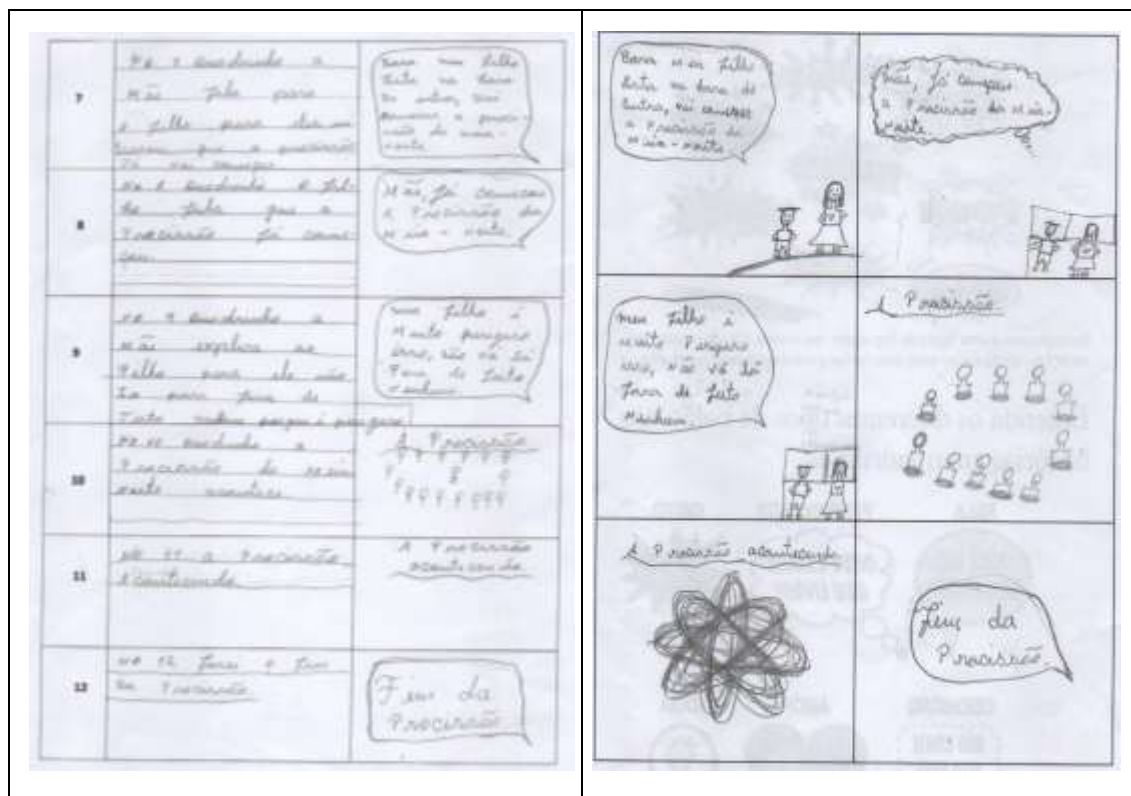 7
No 7 quadrinho a
mãe fala para
o filho para
que a procissão
já vai começar
Bara meu filho
Deita na hora
meia-
noite
8
No 8 quadrinho o fil-
ho fala que a
Procissão já come-
çou.
Mãe, já começou
A Procissão da
Meia-noite.
9
no 9 quadrinho a
mãe explica ao
Filho para ele não
Ir para fora de
Jeito nenhum porque é perigoso
meu filho é
Muito perigoso
isso, não vá lá
Fora de Jeito
Nenhum.
10
No 10 quadrinho a
Procissão de meia
noite acontece
A Procissão
11
No 11 a Procissão
Acontecendo.
A Procissão
acontecendo.
12
No 12 Farei o fim
da Procissão.
Fim da
Procissão
Bara meu filho
Deita na hora de
Dentro, vai começar
a Procissão da
Meia-noite
mãe, já começou
a Procissão da Meia-
noite
meu filho é
muito Perigoso
isso, não vá lá
Fora de Jeito
Nenhum.
A Procissão
A Procissão acontecendo
Fim da
Procissão.